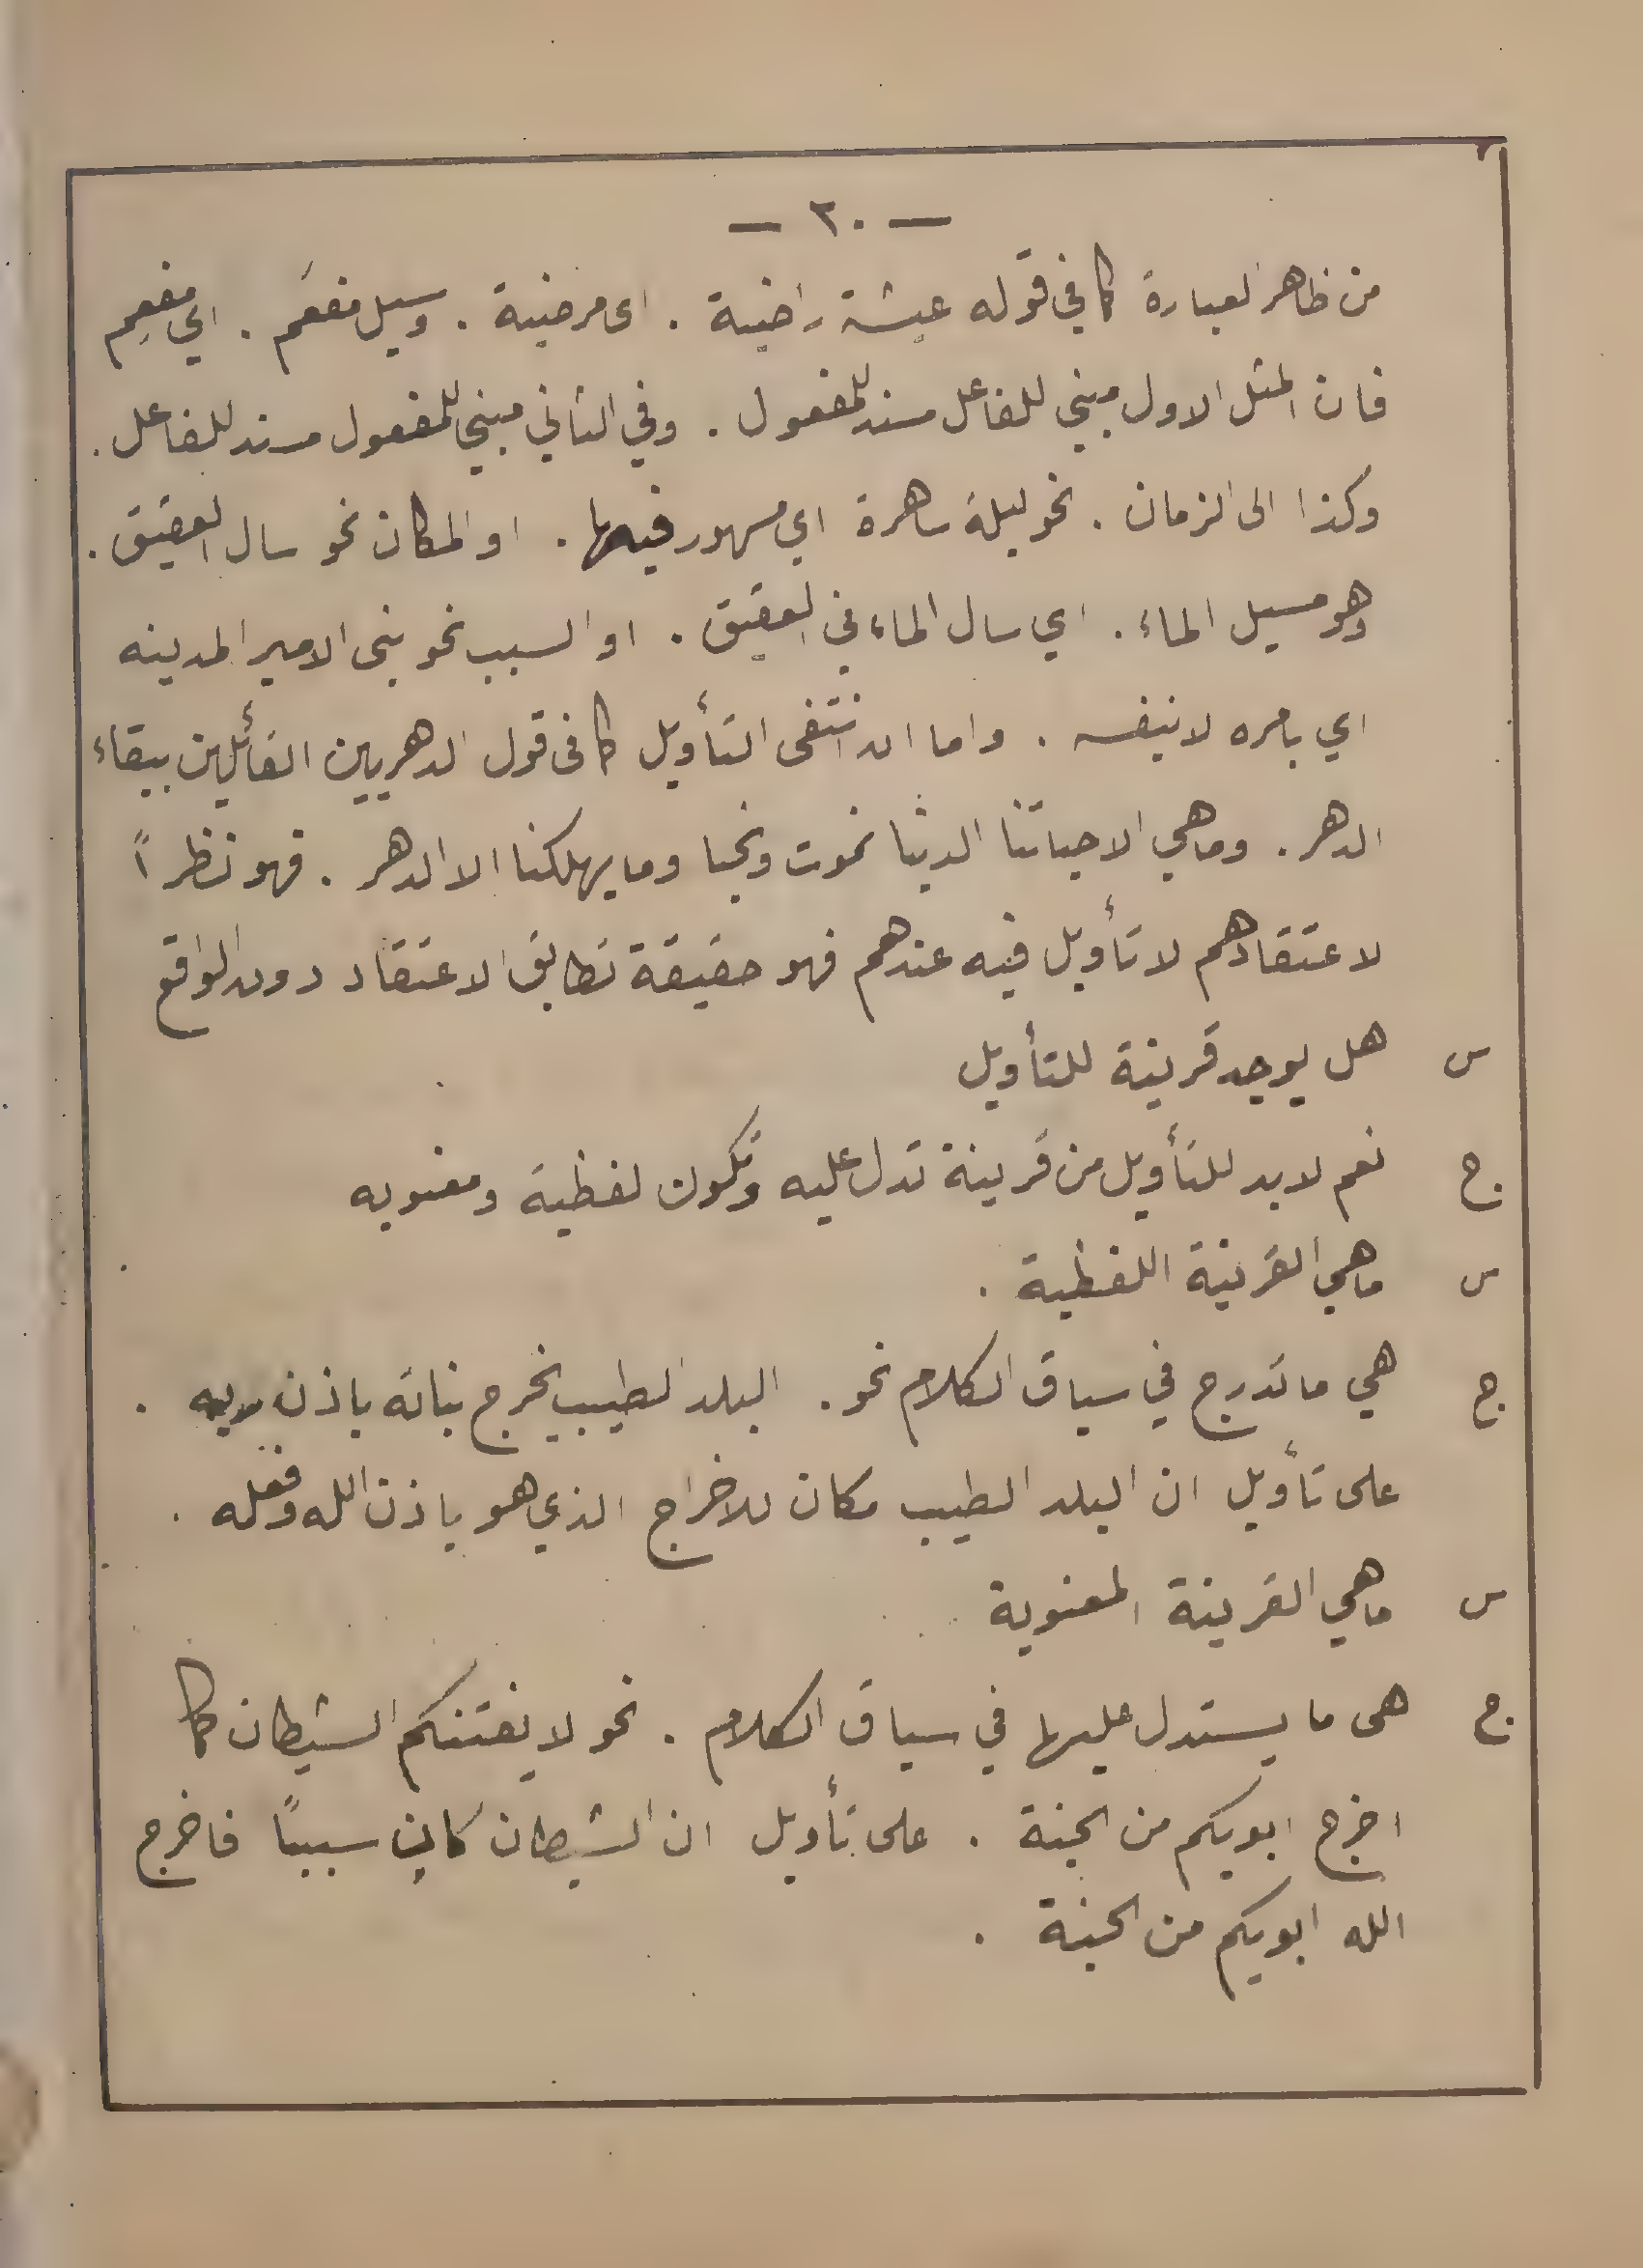 — ٢٠ —
من ظاهر العبارة كما في قوله عيشة راضية . اى مرضية . وسيل مفعَم . اي مفعِم
فان المثل الاول مبني للفاعل مسند للمفعول . وفي الثاني مبني للمفعول مسند للفاعل .
وكذا الى الزمان . نحو ليلة ساهرة اي مسهور فيها . او المكان نحو سال العقيق .
وهو مسيل الماء . اي سال الماء في العقيق . او السبب نحو بنى الامير المدينه
اي بامره لا بنفسه . واما ان انتفى التأويل كما فى قول الدهريين القائلين ببقاء
الدهر . وما هي الا حياتنا الدنيا نموت ونحيا وما يهلكنا الا الدهر . فهو نظراً
لاعتقادهم لا تأويل فيه عندهم فهو حقيقة تطابق الاعتقاد دون الواقع
س هل يوجد قرينة للتأويل
ج نعم لابد للتأويل من قرينة تدل عليه وتكون لفظية ومعنويه
س ما هي القرينة اللفظية .
ج هي ما تدرج في سياق الكلام نحو . البلد الطيب يخرج نباته باذن ربه .
على تأويل ان البلد الطيب مكان للاخراج الذي هو باذن الله وفعله .
س ما هي القرينة المعنوية
ج هى ما يستدل عليها في سياق الكلام . نحو لا يفتننكم الشيطان كما
اخرج ابويكم من الجنة . على تأويل ان الشيطان كان سبباً فاخرج
الله ابويكم من الجنة .